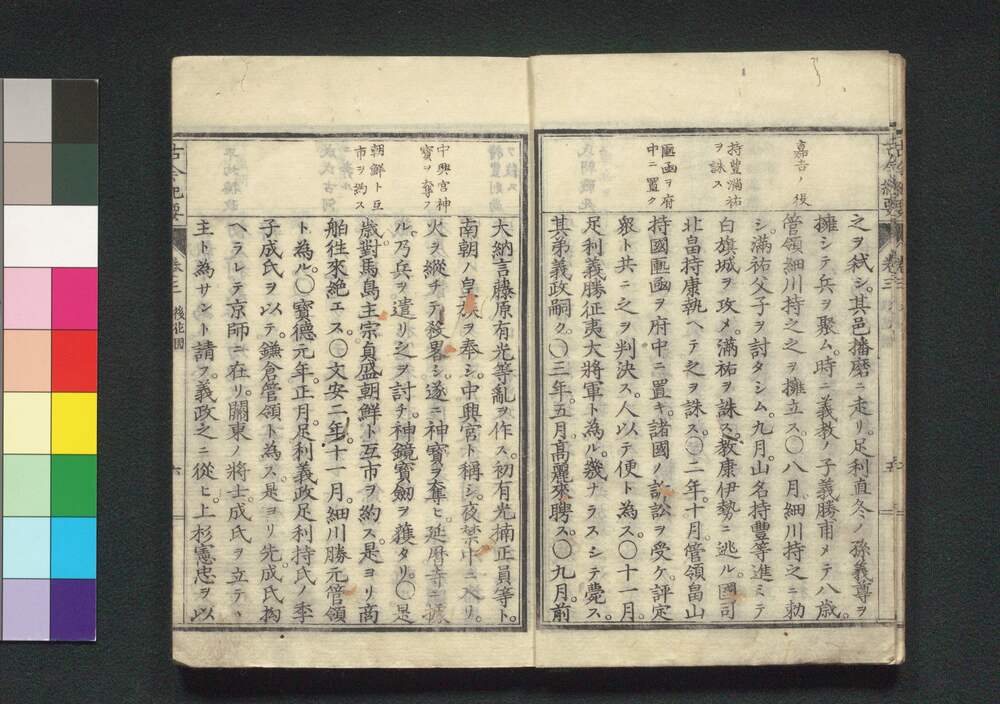 嘉吉ノ役
持豊満祐
ヲ誅ス
匭函ヲ府
中ニ置ク
之ヲ弑シ。其邑播磨ニ走リ。足利直冬ノ孫義尊ヲ
擁シテ兵ヲ聚ム。時ニ義教ノ子義勝甫メテ八歳。
管領細川持之之ヲ擁立ス。〇八月。細川持之ニ勅
シ。満祐父子ヲ討タシム。九月。山名持豊等進ミテ
白旗城ヲ攻メ。満祐ヲ誅ス。教康伊勢ニ逃ル。國司
北畠持康執ヘテ之ヲ誅ス。〇二年。十月。管領畠山
持國匭函ヲ府中ニ置キ。諸國ノ訟ヲ受ケ。評定
衆ト共ニ之ヲ判決ス。人以テ便ト為ス。〇十一月。
足利義勝征夷大將軍ト為ル。幾ナラスシテ薨ス。
其弟義政嗣ク。〇三年。五月。高麗來聘ス。〇九月。前
中興宮神
寳ヲ奪フ
朝鮮ト互
市ヲ約ス
大納言藤原有光等亂ヲ作ス。初有光楠正員等ト。
南朝ノ皇族ヲ奉シ。中興宮ト稱シ。夜禁中ニ入リ。
火ヲ縱チテ移畧シ。遂ニ神寳ヲ奪ヒ。延暦寺ニ據
ル。乃兵ヲ遣リ之ヲ討チ。神鏡寳劒ヲ獲タリ。〇是
歳。對馬島主宗貞盛朝鮮ト互市ヲ約ス。是ヨリ商
舶徃來絶エス。〇文安二年。十一月。細川勝元管領
ト為ル。〇寳德元年。正月。足利義政足利持氏ノ季
子成氏ヲ以テ。鎌倉管領ト為ス。是ヨリ先。成氏拘
ヘラレテ京師ニ在リ。關東ノ將士。成氏ヲ立テヽ
主ト為サント請フ。義政之ニ從ヒ。上杉憲忠ヲ以
古今紀要
卷三
後花園
六